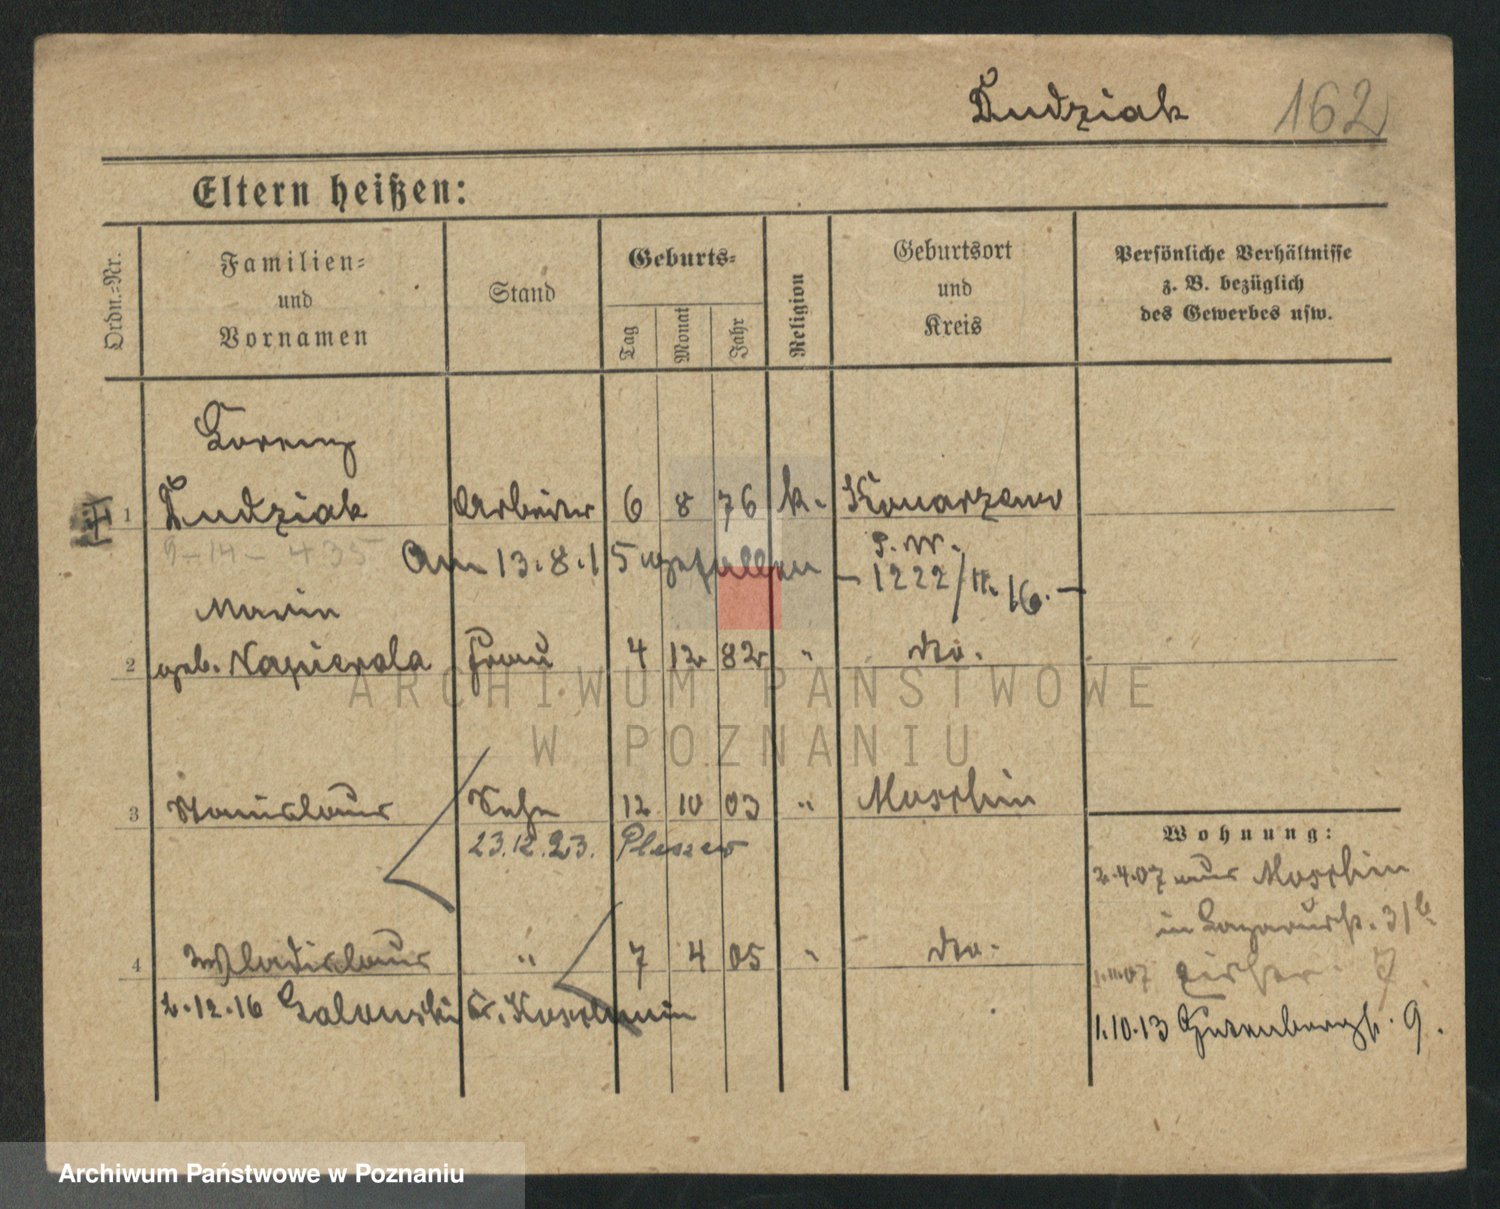 Dudziak 162
Eltern heißen:
Ordn.=Nr.
Familien=
und
Vornamen
Stand
Geburts=
Tag
Monat
Jahr
Religion
Geburtsort
und
Kreis
Persönliche Verhältnisse
z. B. bezüglich
des Gewerbes usw.
Lorenz
1 Dudziak Arbeiter 6 8 76 k. Konarzewo
9-14-435 Am 13.8.15 gefallen P.W.
- 1222/II. 16. -
Marie
2 geb. Napierala Frau 4 12 82 " do.
3 Stanislaus Sohn 12 10 03 " Moschin
23.12.23. Pleszew
Wohnung:
2.4.07 aus Moschin
in Lazarusstr. 31b
4 Wladislaus " 7 4 05 " do.
2.12.16 Kr. Koschmin
7
1.10.13 Gutenbergstr. 9.
ARCHIWUM PAŃSTWOWE
W POZNANIU
Archiwum Państwowe w Poznaniu